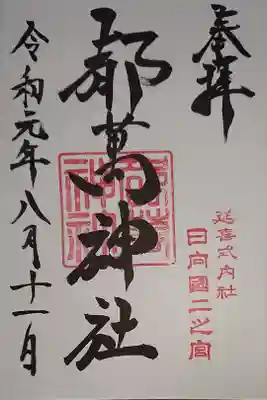 奉拝
延喜式内社
日向國二之宮
都萬神社
令和元年八月十一日